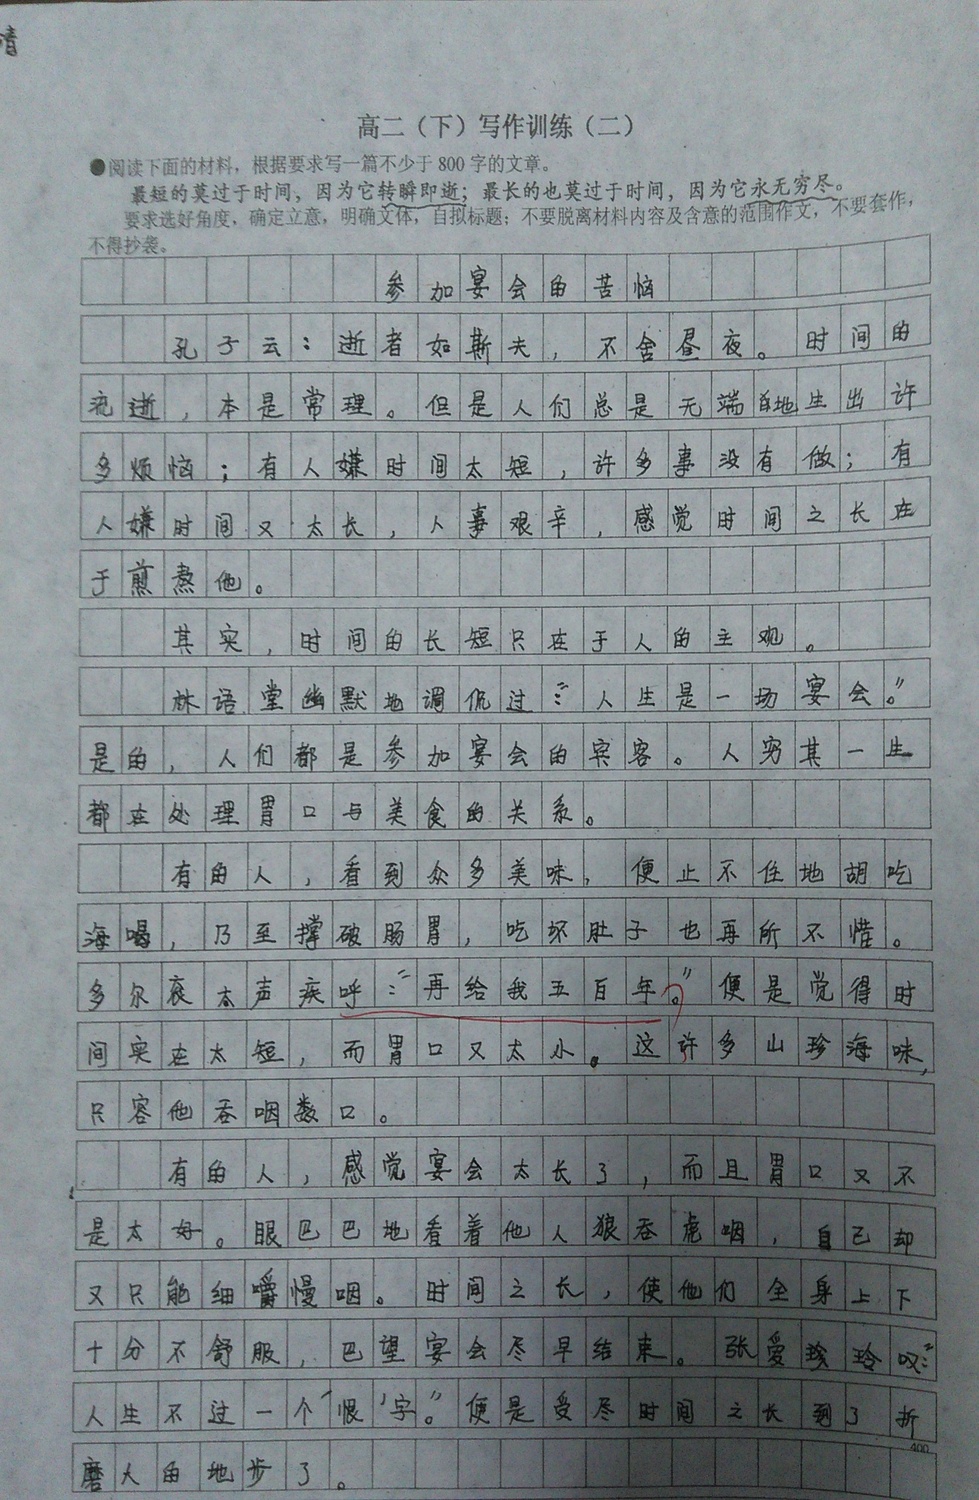 清
高二（下）写作训练（二）
●阅读下面的材料，根据要求写一篇不少于800字的文章。
最短的莫过于时间，因为它转瞬即逝；最长的也莫过于时间，因为它永无穷尽。
要求选好角度，确定立意，明确文体，自拟标题；不要脱离材料内容及含意的范围作文，不要套作，
不得抄袭。
参加宴会的苦恼
孔子云：逝者如斯夫，不舍昼夜。时间的
流逝，本是常理。但是人们总是无端地生出许
多烦恼；有人嫌时间太短，许多事没有做；有
人嫌时间又太长，人事艰辛，感觉时间之长在
于煎熬他。
其实，时间的长短只在于人的主观。
林语堂幽默地调侃过：“人生是一场宴会。”
是的，人们都是参加宴会的宾客。人穷其一生
都在处理胃口与美食的关系。
有的人，看到众多美味，便止不住地胡吃
海喝，乃至撑破肠胃，吃坏肚子也再所不惜。
多尔衮大声疾呼：“再给我五百年。”便是觉得时
间实在太短，而胃口又太小。这许多山珍海味，
只容他吞咽数口。
有的人，感觉宴会太长了，而且胃口又不
是太好。眼巴巴地看着他人狼吞虎咽，自己却
又只能细嚼慢咽。时间之长，使他们全身上下
十分不舒服，巴望宴会尽早结束。张爱玲叹：“
人生不过一个‘恨’字。”便是受尽时间之长到了折
磨人的地步了。
400